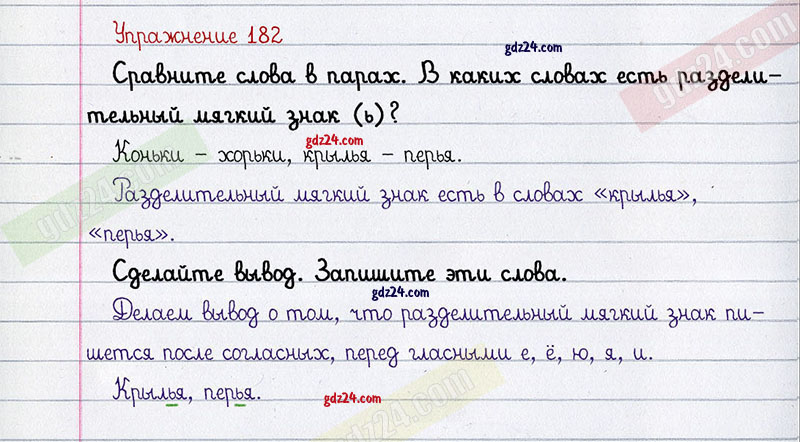 Упражнение 182
gdz24.com
Сравните слова в парах. В каких словах есть раздели-
тельный мягкий знак (ь)?
gdz24.com
Коньки – хорьки, крылья – перья.
Разделительный мягкий знак есть в словах «крылья»,
«перья».
Сделайте вывод. Запишите эти слова.
gdz24.com
Делаем вывод о том, что разделительный мягкий знак пи-
шется после согласных, перед гласными е, ё, ю, я, и.
Крылья, перья.
gdz24.com
gdz24.com
gdz24.com
gdz24.com